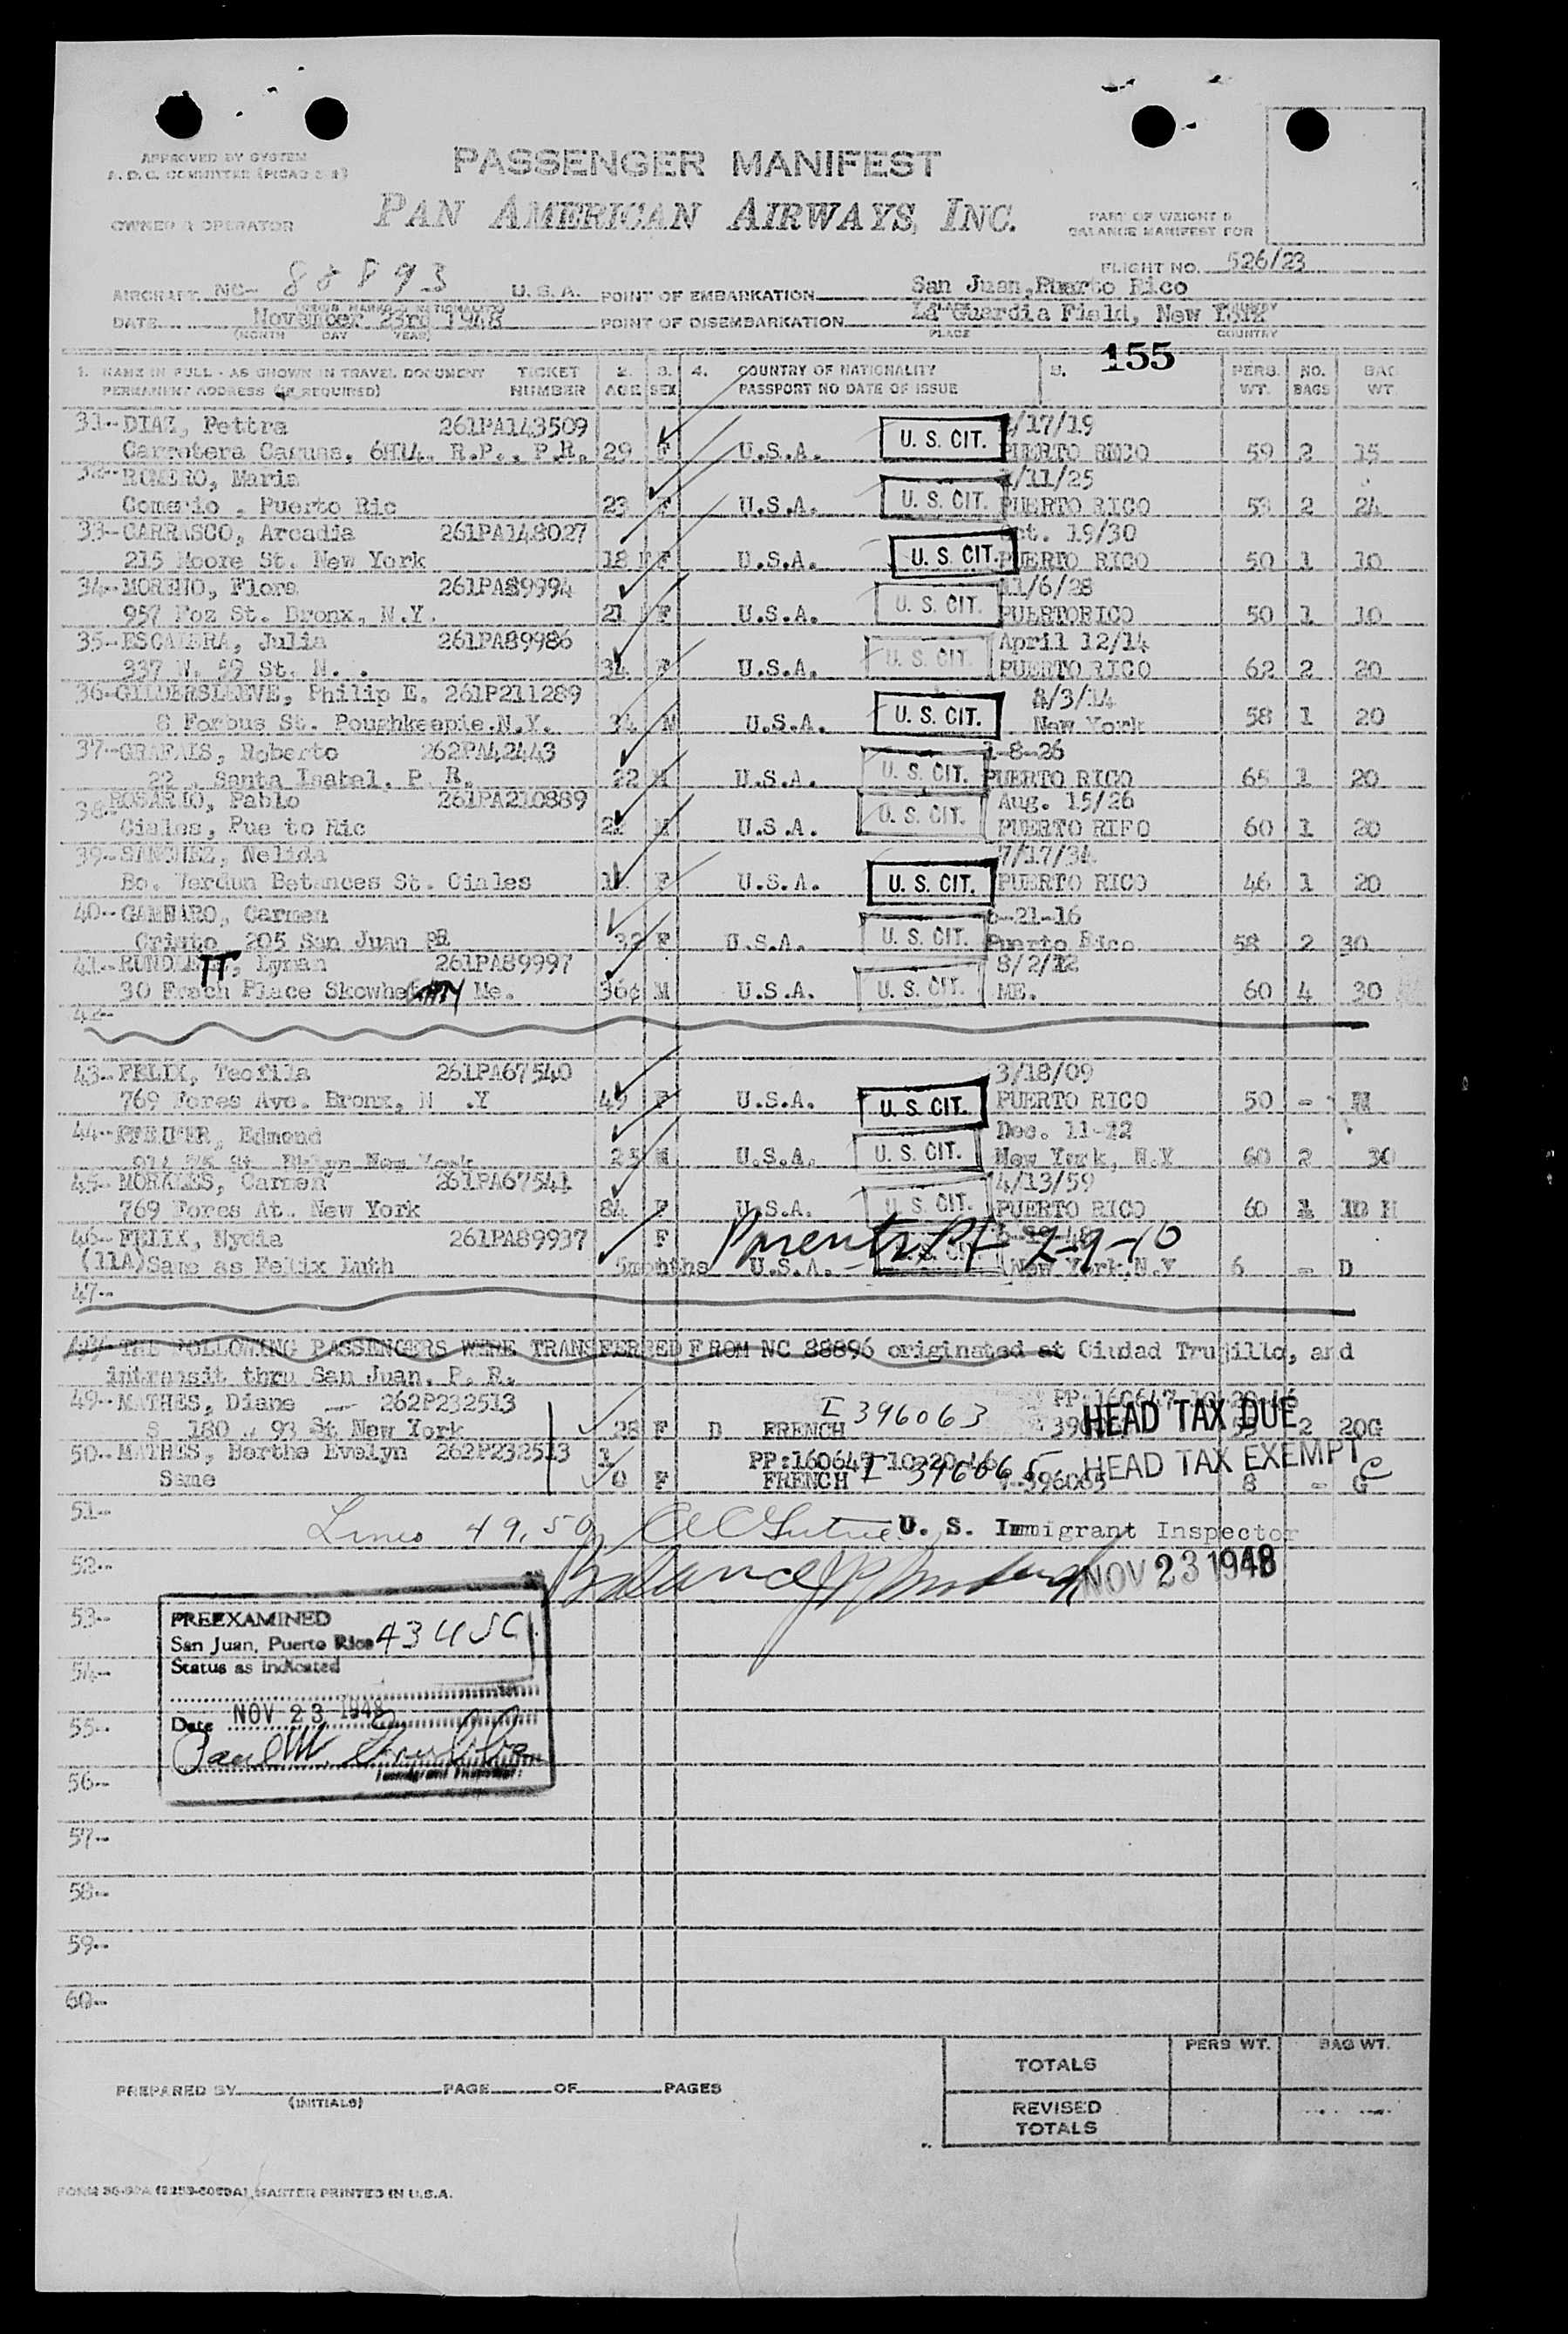 APPROVED BY SYSTEM
PASSENGER MANIFEST
A. D. C. COMMITTEE
OWNER & OPERATOR
PAN AMERICAN AIRWAYS, INC.
PART OF WEIGHT &
BALANCE MANIFEST FOR
FLIGHT NO. 526/23
AIRCRAFT NC- 88893 U. S. A.
POINT OF EMBARKATION San Juan, Puerto Rico
DATE November 23rd 1948
(MONTH DAY YEAR)
POINT OF DISEMBARKATION La Guardia Field, New York
PLACE COUNTRY
155
1. NAME IN FULL - AS SHOWN IN TRAVEL DOCUMENT TICKET 2. 3. 4. COUNTRY OF NATIONALITY 5. PERS. NO. BAG
PERMANENT ADDRESS (IF REQUIRED) NUMBER AGE SEX PASSPORT NO DATE OF ISSUE WT. BAGS WT.
31-- DIAZ, Pettra 261PA143509 /17/19
Carretera Caguas, R.P., P.R. 29 F U.S.A. U. S. CIT. PUERTO RICO 59 2 15
32-- ROMERO, Maria /11/25
Comerio . Puerto Ric 23 F U.S.A. U. S. CIT. PUERTO RICO 53 2 24
33-- CARRASCO, Arcadia 261PA148027 Oct. 19/30
215 Moore St. New York 18 F U.S.A. U. S. CIT. PUERTO RICO 50 1 10
34-- MORENO, Flora 261PA89994 11/6/28
957 Fox St. Bronx, N.Y. 21 F U.S.A. U. S. CIT. PUERTORICO 50 1 10
35-- ESCALERA, Julia 261PA89986 April 12/14
337 N. 59 St. N. . 34 F U.S.A. U. S. CIT. PUERTO RICO 62 2 20
36- GILDERSLEEVE, Philip E. 261P211289 8/3/14
8 Forbus St. Poughkeepie.N.Y. 34 M U.S.A. U. S. CIT. New York 58 1 20
37-- GRAFALS, Roberto 262PA42443 1-8-26
22 , Santa Isabel, P. R. 22 M U.S.A. U. S. CIT. PUERTO RICO 65 1 20
38- ROSARIO, Pablo 261PA210889 Aug. 15/26
Ciales, Pue to Ric 22 M U.S.A. U. S. CIT. PUERTO RIFO 60 1 20
39-- SANCHEZ, Nelida 7/17/34
Bo. Verdun Betances St. Ciales F U.S.A. U. S. CIT. PUERTO RICO 46 1 20
40-- Carmen -21-16
Cristo 205 San Juan PR 32 F U.S.A. U. S. CIT. Puerto Rico 58 2 30
41-- RUNDLETT, Lyman 261PA89997 8/2/12
30 Place Me. 36 M U.S.A. U. S. CIT. ME. 60 4 30
42--
43-- FELIX, Teofila 261PA67540 3/18/09
769 Fores Ave. Bronx, N .Y 49 F U.S.A. U. S. CIT. PUERTO RICO 50 -
44-- PFEUFER, Edmond Dec. 11-22
St. Bklyn New York 25 M U.S.A. U. S. CIT. New York, N.Y 60 2 30
45-- MORALES, Carmen 261PA67541 4/13/59
769 Fores At. New York 84 F U.S.A. U. S. CIT. PUERTO RICO 60 1 10
46-- FELIX, Nydia 261PA89937 F Parents 2-9-10
(11A) Same as Felix Luth 5months U.S.A. New York.N.Y 6 - D
47--
THE FOLLOWING PASSENGERS WERE TRANSFERRED FROM NC 88896 originated at Ciudad Trujillo, and
intransit thru San Juan, P. R.
49-- MATHES, Diane 262P232513 I 396063 PP:160647 10-20-46
180 93 St New York 28 F D FRENCH HEAD TAX DUE 2 20G
50-- MATHES, Berthe Evelyn 262P232513 1 PP:160647 10-20-46 HEAD TAX EXEMPT
Same F FRENCH I 396065 396065 8 - G
51--
Lines 49, 50 U. S. Immigrant Inspector
52-- NOV 23 1948
53--
PREEXAMINED
San Juan, Puerto Rico
Status as indicated
54--
Date NOV 23 1948
55--
Immigrant Inspector
56--
57--
58--
59--
60--
TOTALS PERS WT. BAG WT.
PREPARED BY PAGE OF PAGES
(INITIALS)
REVISED
TOTALS
MASTER PRINTED IN U.S.A.